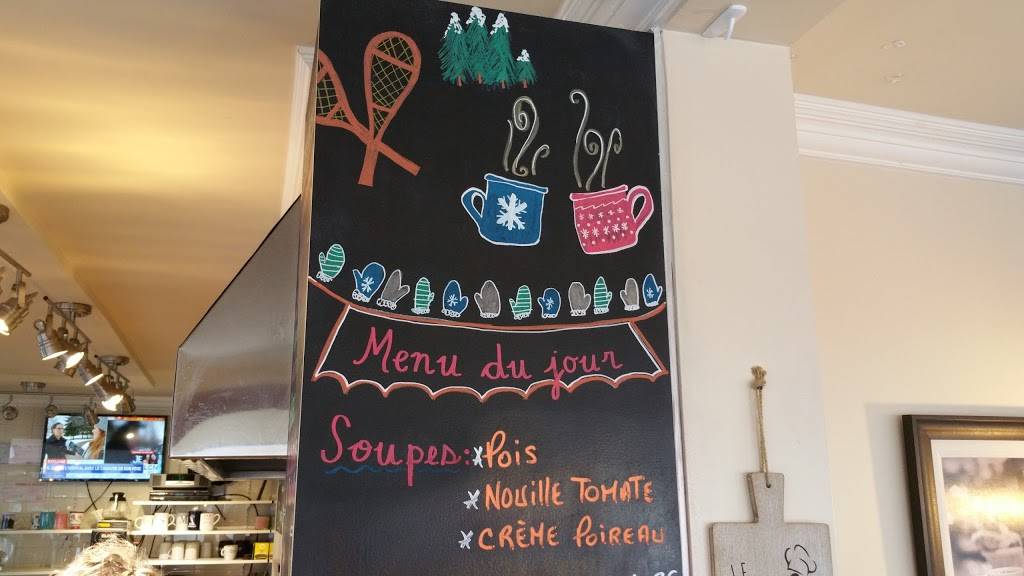 Menu du jour
Soupes: *Pois
*NOUILLE TOMATE
*CRÈME POIREAU
LE